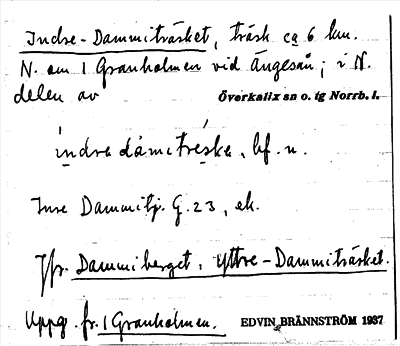 Indre-Dammiträsket, träsk ca 6 km.
N. om 1 Granholmen vid Ängesån; i N.
delen av Överkalix sn o. tg Norrb. l.
ìndre dámitréske, bf. n.
Inre Dammitj. G. 23, ek.
Jfr. Dammiberget, Yttre-Dammiträsket.
Uppg. fr. 1 Granholmen. EDVIN BRÄNNSTRÖM 1937